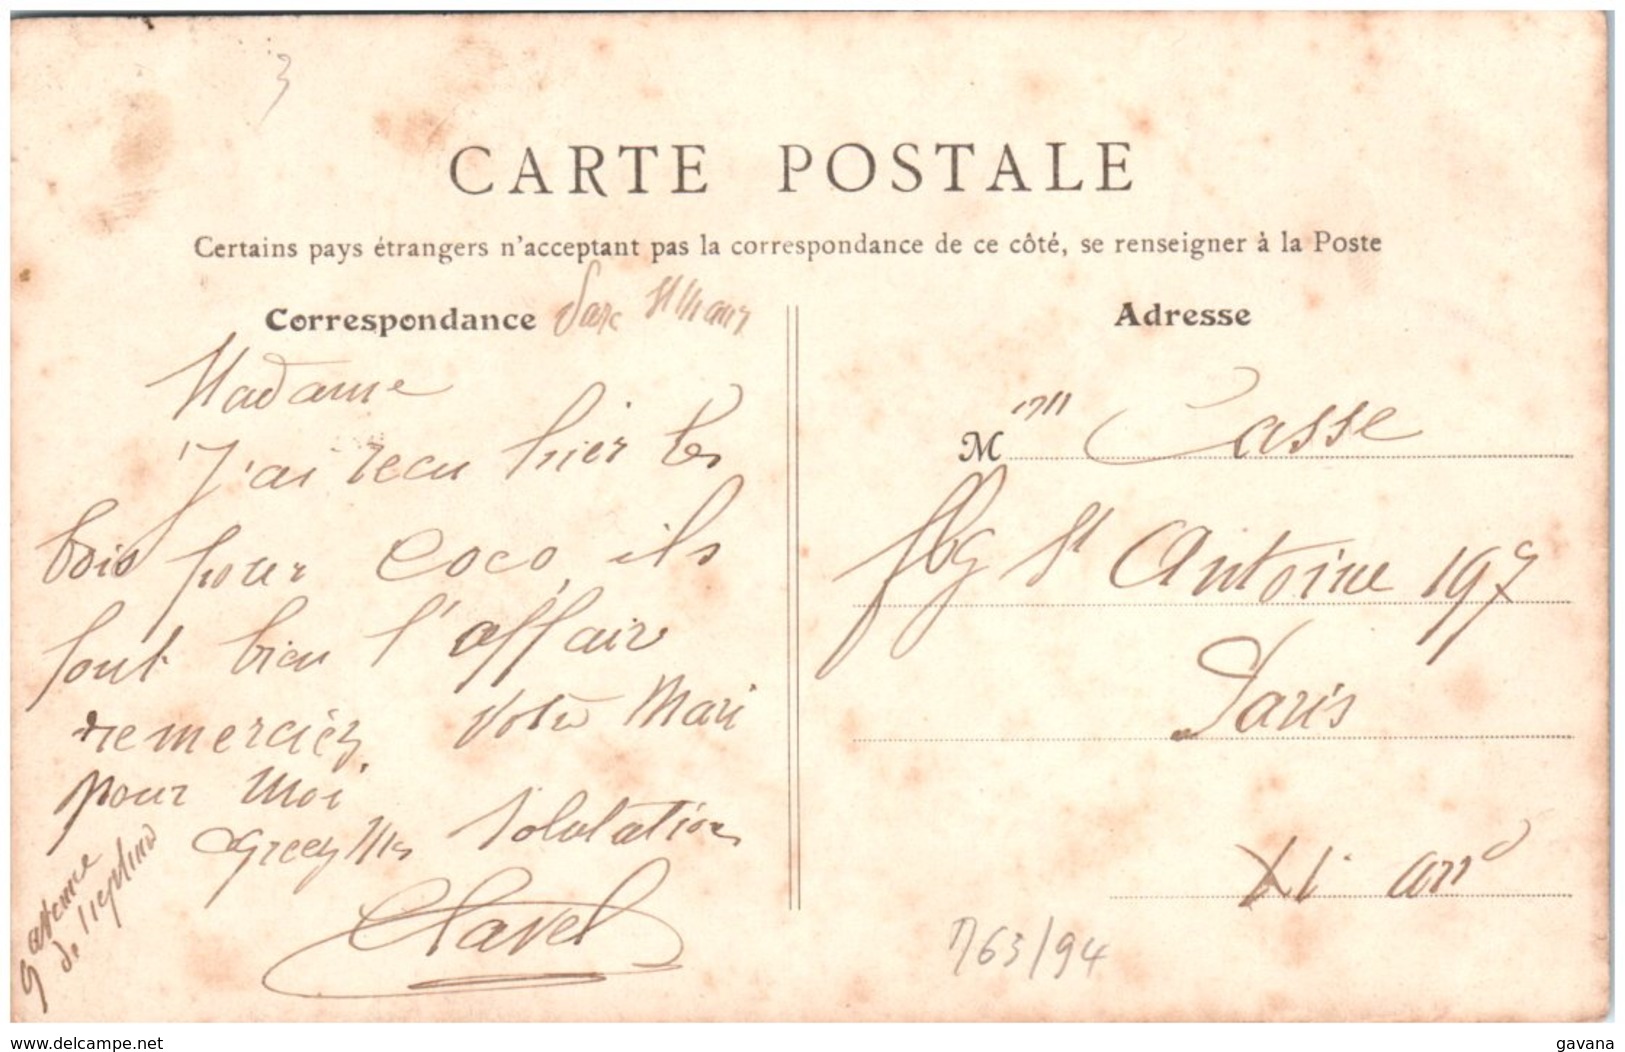 3
CARTE POSTALE
Certains pays étrangers n'acceptant pas la correspondance de ce côté, se renseigner à la Poste
Correspondance Parc St Maur
Adresse
Madame
J'ai recu hier les
bois pour Coco, ils
font bien l'affaire
remerciéz votre Mari
pour moi
Salutation
Clavel
9 avenue
de
Mme Casse
fbg St Antoine 197
Paris
XI arrd
M63/94
www.delcampe.net
gavana